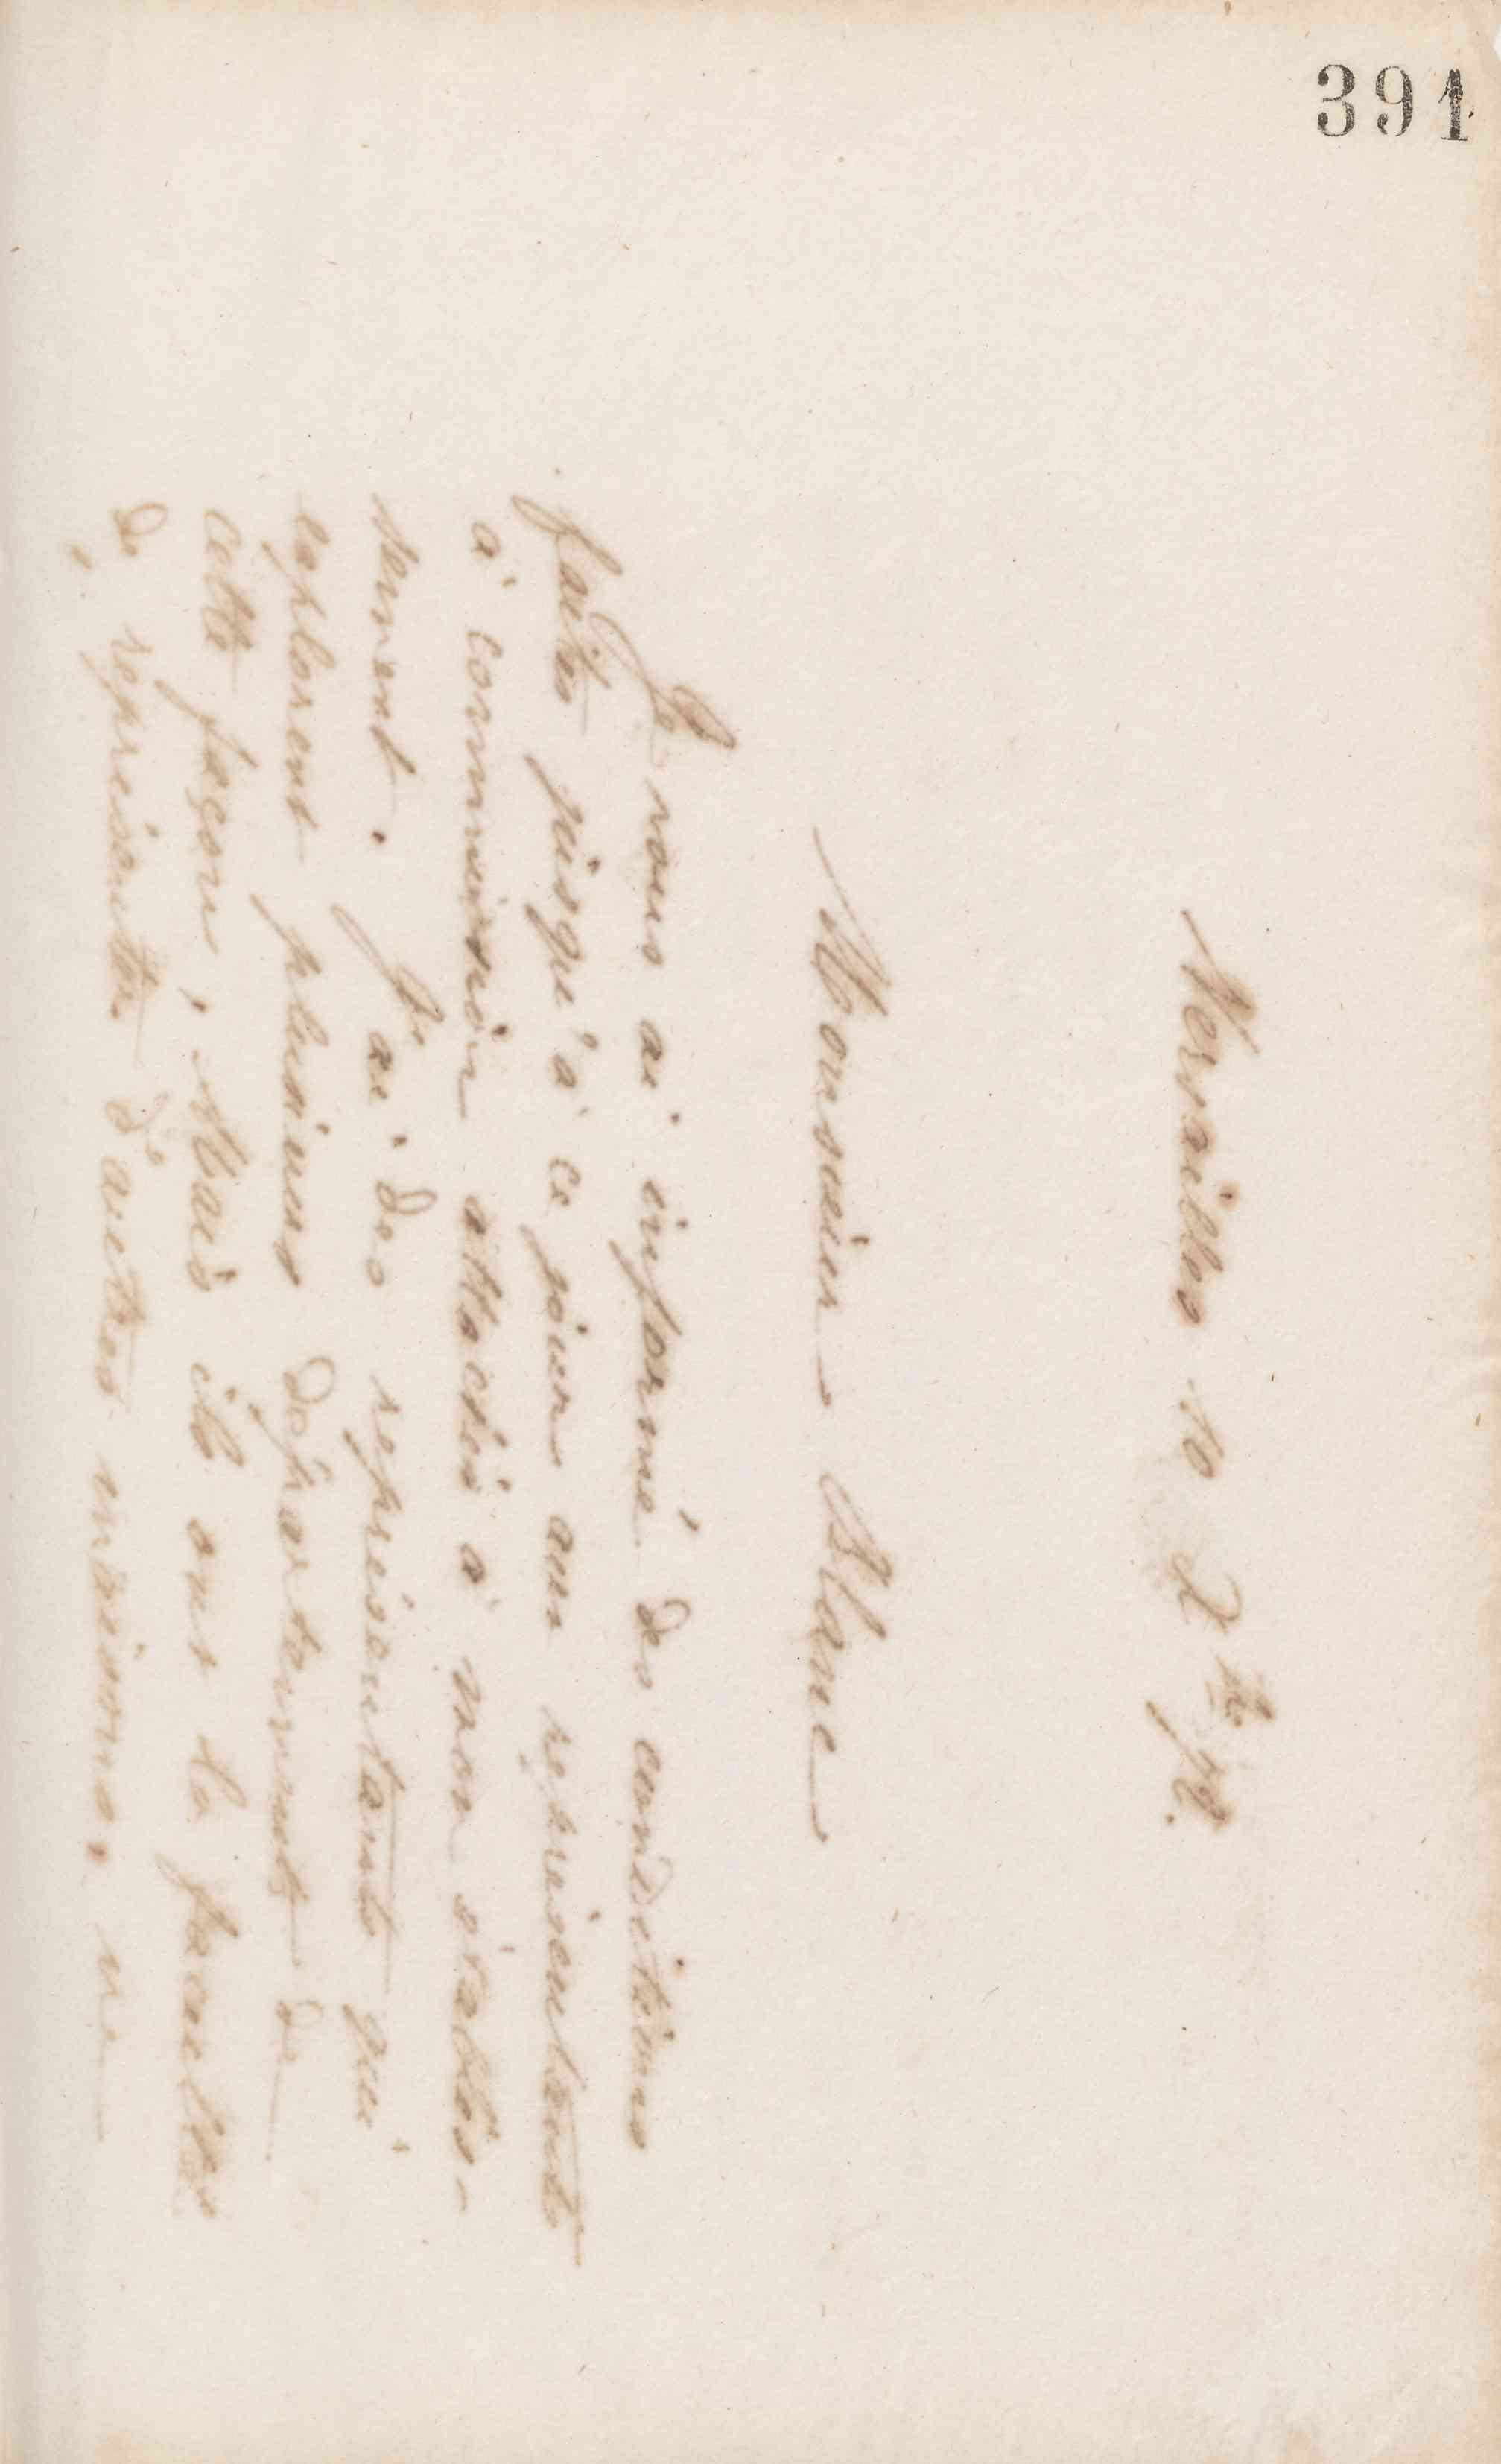 391
Versailles 10 Xbre /92.
Monsieur Blanc
Je vous ai informé des conditions
faites jusqu'à ce jour aux représentants
à commission attachés à mon établis-
sement. J'ai des représentants qui
explorent plusieurs départements de
cette façon, Mais ils ont la faculté
de représenter d'autres maisons, ne